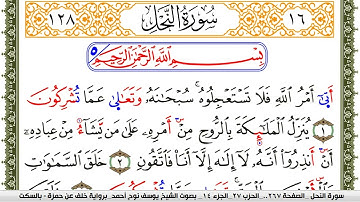 ١٢٨ سُورَةُ النَّحْلِ ١٦
بِسْمِ اللَّهِ الرَّحْمَٰنِ الرَّحِيمِ
أَتَىٰ أَمْرُ اللَّهِ فَلَا تَسْتَعْجِلُوهُ سُبْحَانَهُ وَتَعَالَىٰ عَمَّا تُشْرِكُونَ
١ يُنَزِّلُ الْمَلَائِكَةَ بِالرُّوحِ مِنْ أَمْرِهِ عَلَىٰ مَنْ يَشَاءُ مِنْ عِبَادِهِ
أَنْ أَنْذِرُوا أَنَّهُ لَا إِلَٰهَ إِلَّا أَنَا فَاتَّقُونِ ٢ خَلَقَ السَّمَاوَاتِ
سورة النحل .. الصفحة ٢٦٧ .. الحزب ٢٧ .. الجزء ١٤ .. بصوت الشيخ يوسف نوح أحمد .. برواية خلف عن حمزة - بالسكت